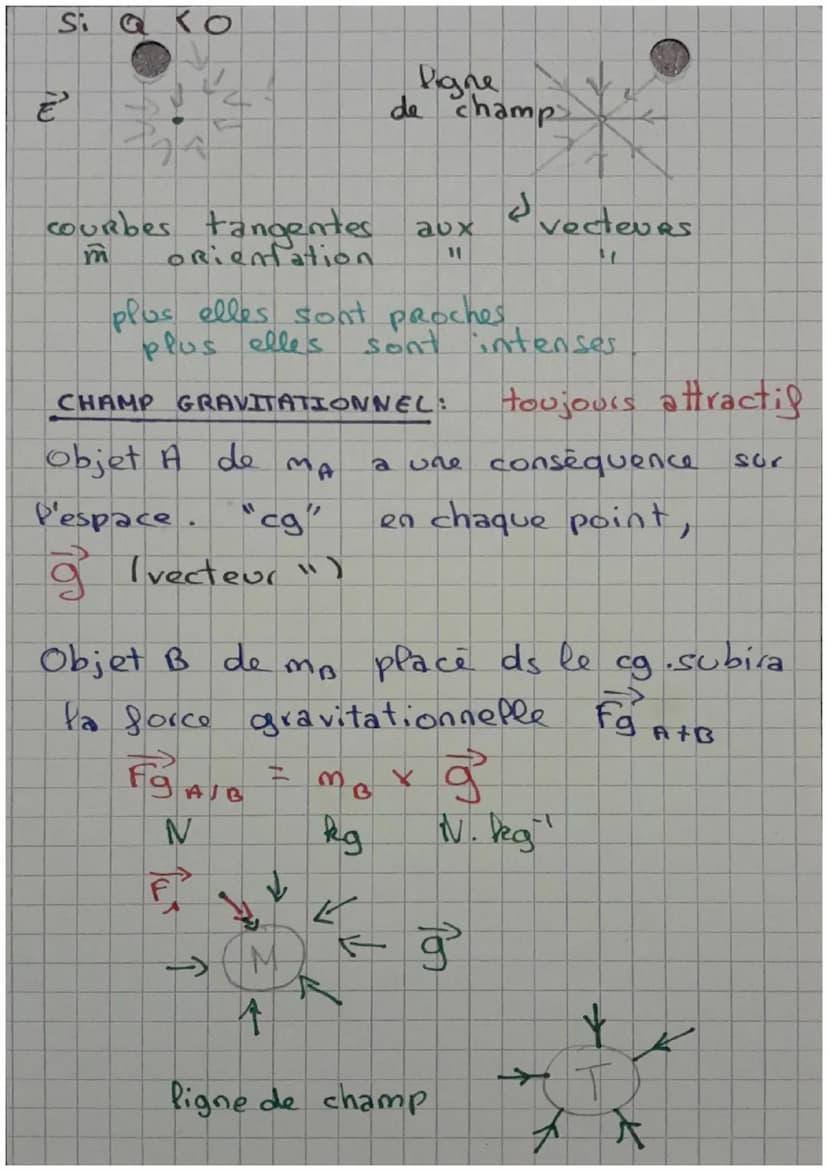 Si Q < 0
E⃗
ligne
de champ
courbes tangentes aux vecteurs
m̄ orientation " "
plus elles sont proches
plus elles sont intenses
CHAMP GRAVITATIONNEL: toujours attractif
Objet A de mA a une conséquence sur
l'espace. "cg" en chaque point,
g⃗ (vecteur ")
Objet B de mB placé ds le cg.subira
la force gravitationnelle Fg⃗ A+B
Fg⃗ A/B = mB × g⃗
N kg N.kg⁻¹
F⃗
M g⃗
T
ligne de champ